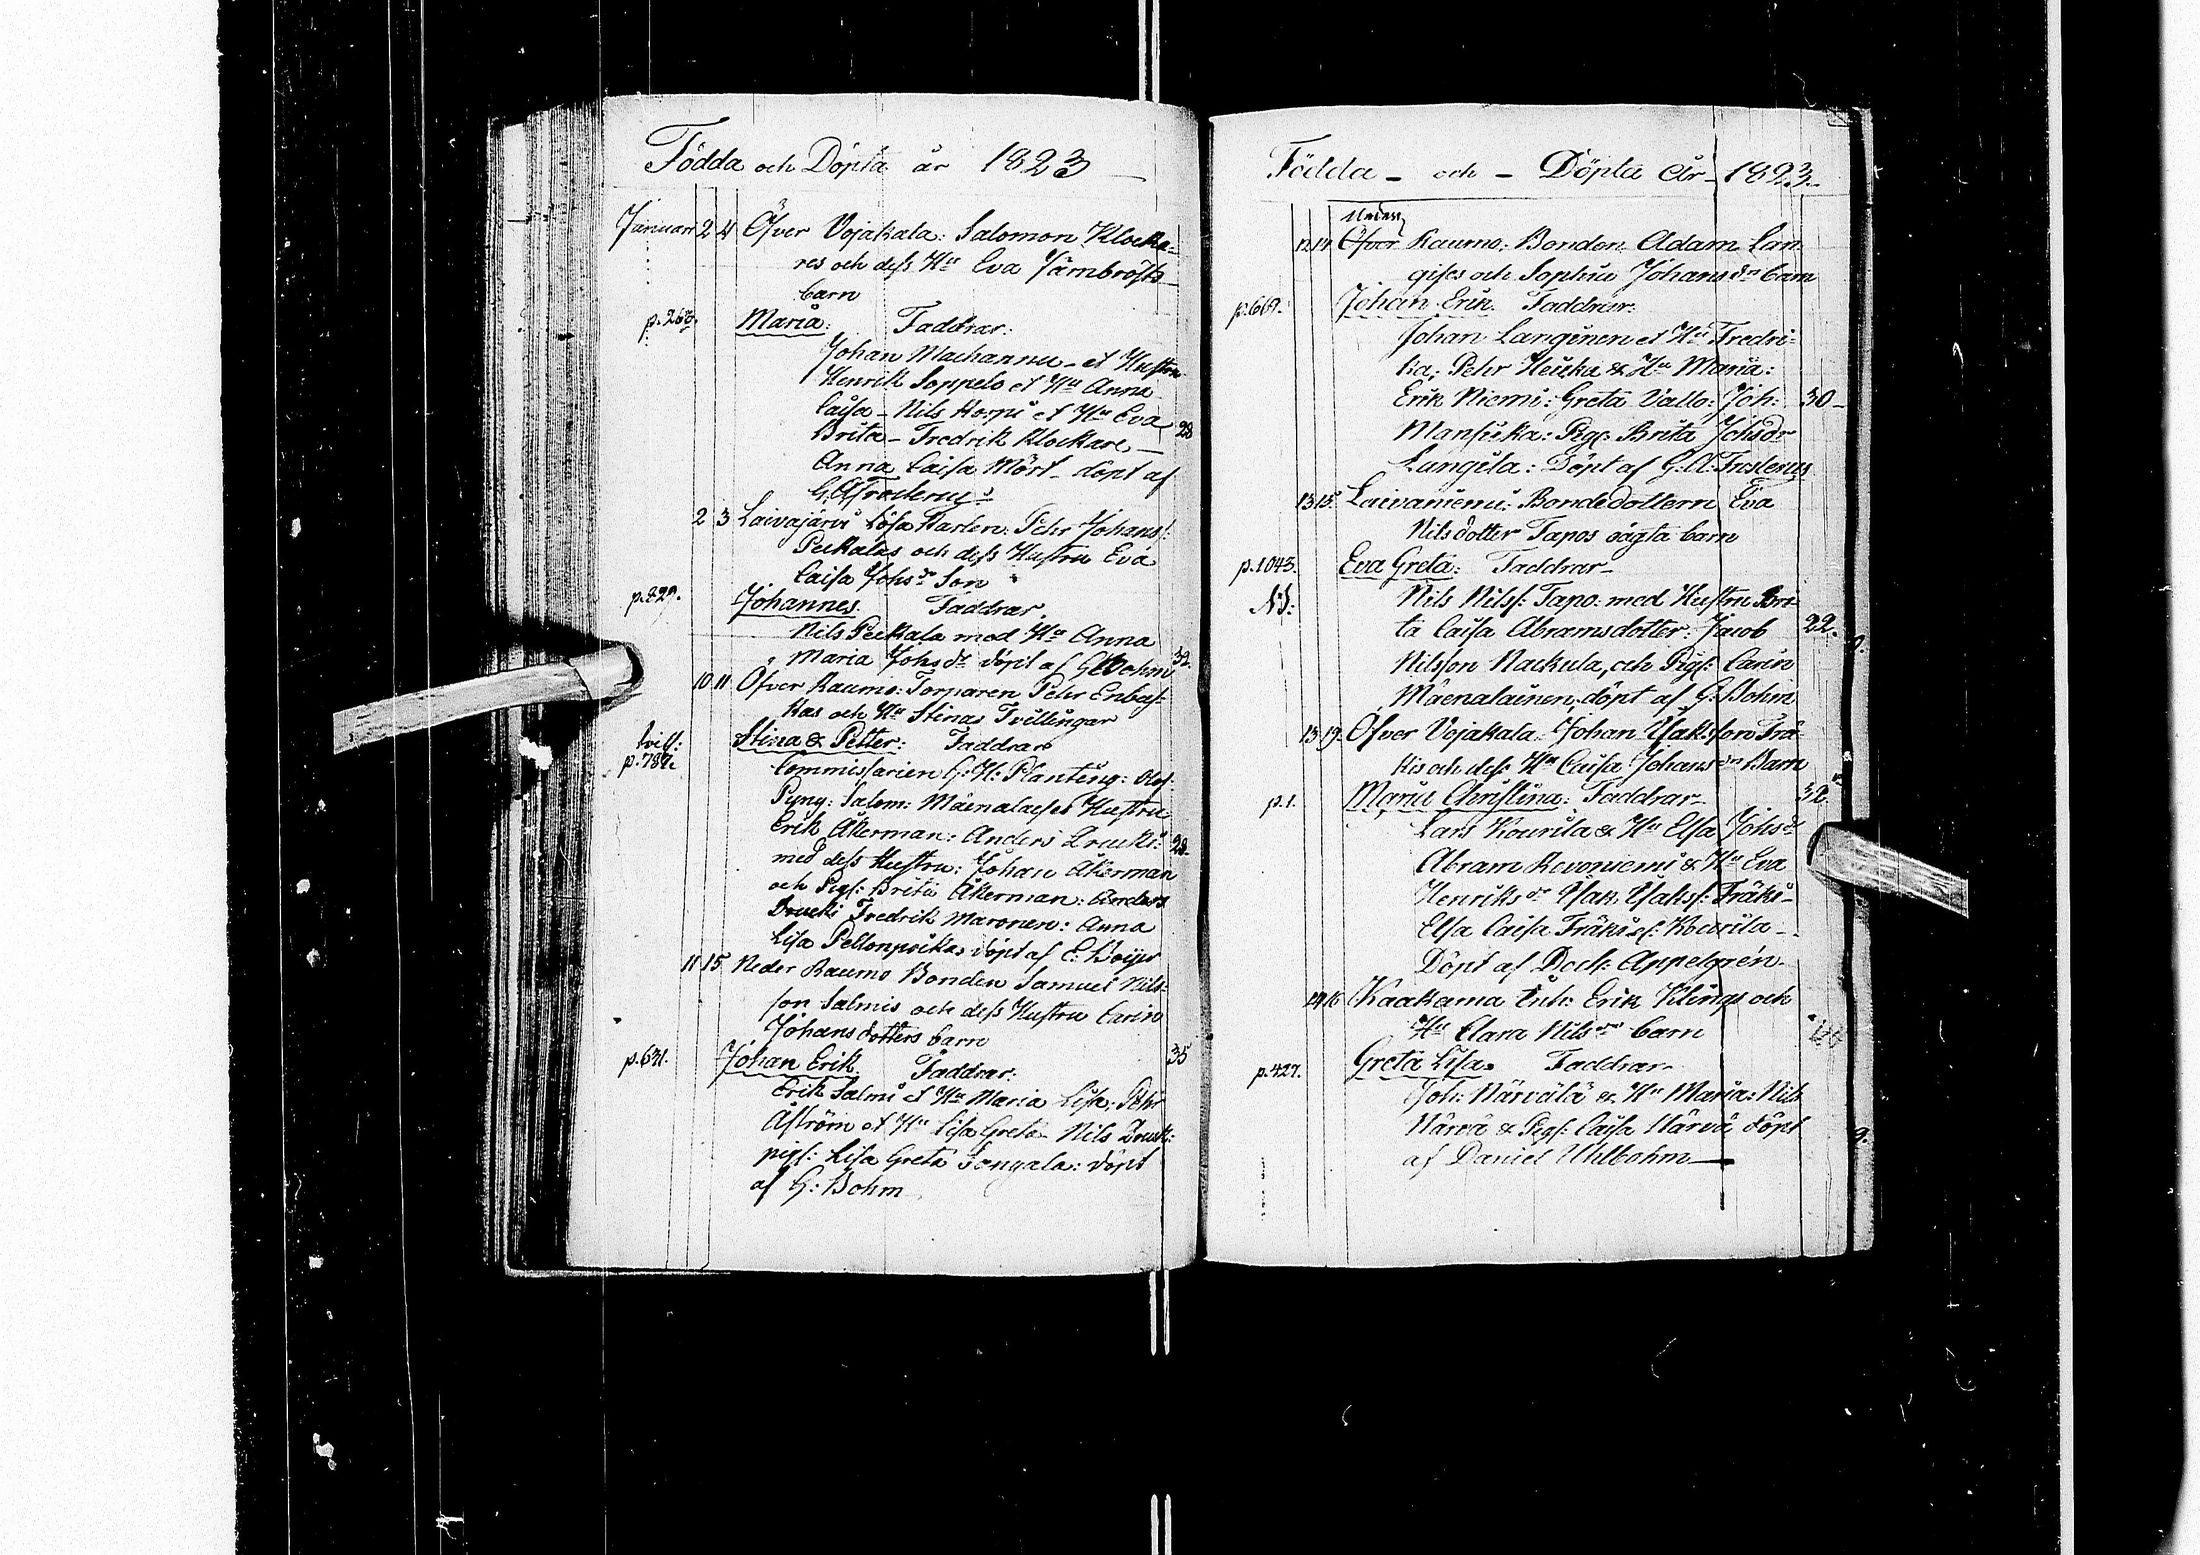 Födda och Döpta år 1823
Januari 2 4 Öfver Vojakala: Salomon Klocka-
res och dess Hu Eva Jämbröfts
barn
p. 268. Maria: Faddrar:
Johan Machannu et Hustru
Henrik Soppelo et Hu Anna
Caisa - Nils Korpi et Hu Eva
28
Brita - Fredrik Klockare,
Anna Caisa Mört - döpt af
G A
2 3 Laivajärvi Lösa Karlen: Pehr Johans:
Peckalas och dess Hustru Eva
Caisa Johsdr Son
p. 829. Johannes. Faddrar,
Nils Peckala med Hu Anna
Maria Johsdr döpt af G Bohm 32.
10 11 Öfver Raumo: Torparen Pehr Enbus-
kas och Hu Stinas Tvillingar
tvill:
p. 787. Stina & Petter: Faddrar
Commissarien G: H: Planting: Olof
Pyny: Salom: Mäenalaises Hustru
Erik Åkerman: Anders Drucki: 28.
med dess Hustru: Johan Åkerman
och Pigs: Brita Åkerman: Anders
Drucki Fredrik Maronen: Anna
Lisa Pellonpoikka, döpt af E: Boijer
11 15 Neder Raumo Bonden Samuel Nils-
son Salmis och dess Hustru Carin
Johansdotters barn
p. 631. Johan Erik. Faddrar: 35
Erik Salmi et Hu Maria Lisa: Pehr
Åström et Hu Lisa Greta - Nils Druck:
pigs: Lisa Greta Sangala: döpt
af G: Bohm
Födda - och - Döpta År - 1823.
Neder
12 14 Öfver Raumo: Bonden Adam Lan
gises och Sophia Johansdr barn
p. 669. Johan Erik. Faddrar:
Johan Langinen et Hu Fredri-
ka; Pehr Heicka & Hu Maria:
Erik Niemi: Greta Vallo: Joh: 30
Mansicka: Pigs: Brita Johsdr
Langila: Döpt af G: A:
13 15. Laivaniemi: Bondedottern Eva
Nilsdotter Tapos oägta barn
p. 1043. Eva Greta: Faddrar
N:S: Nils Nilss: Tapo: med Hustru Bri-
ta Caisa Abramsdotter: Jacob 22.
Nilsson Nackula, och Pigs: Carin
Mäenalainen, döpt af G: Bohm
13 19. Öfver Vojakala: Johan Isaksson Frä-
kis och dess Hu Caisa Johansdr Barn
p. 1. Maria Christina: Faddrar 32
Lars Kourila & Hu Elsa Johsdr
Abram Revoniemi & Hu Eva
Henriksdr Isak Isakss: Fräki -
Elsa Caisa Fräki Kourila -
Döpt af Doct: Appelgrén
14 16 Kaakama Inh: Erik Klings och
Hu Clara Nilsdrs barn
p. 427. Greta Lisa. Faddrar
Joh: Närvälä & Hu Maria: Nils
Närvä & Pigs: Caisa Närvä döpt
af Daniel Uhlbohm